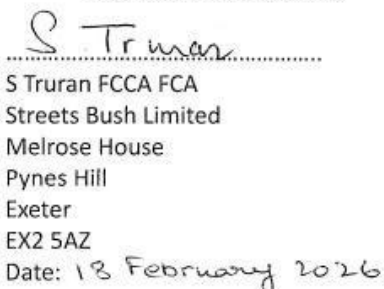 S Truran
S Truran FCCA FCA
Streets Bush Limited
Melrose House
Pynes Hill
Exeter
EX2 5AZ
Date: 18 February 2026